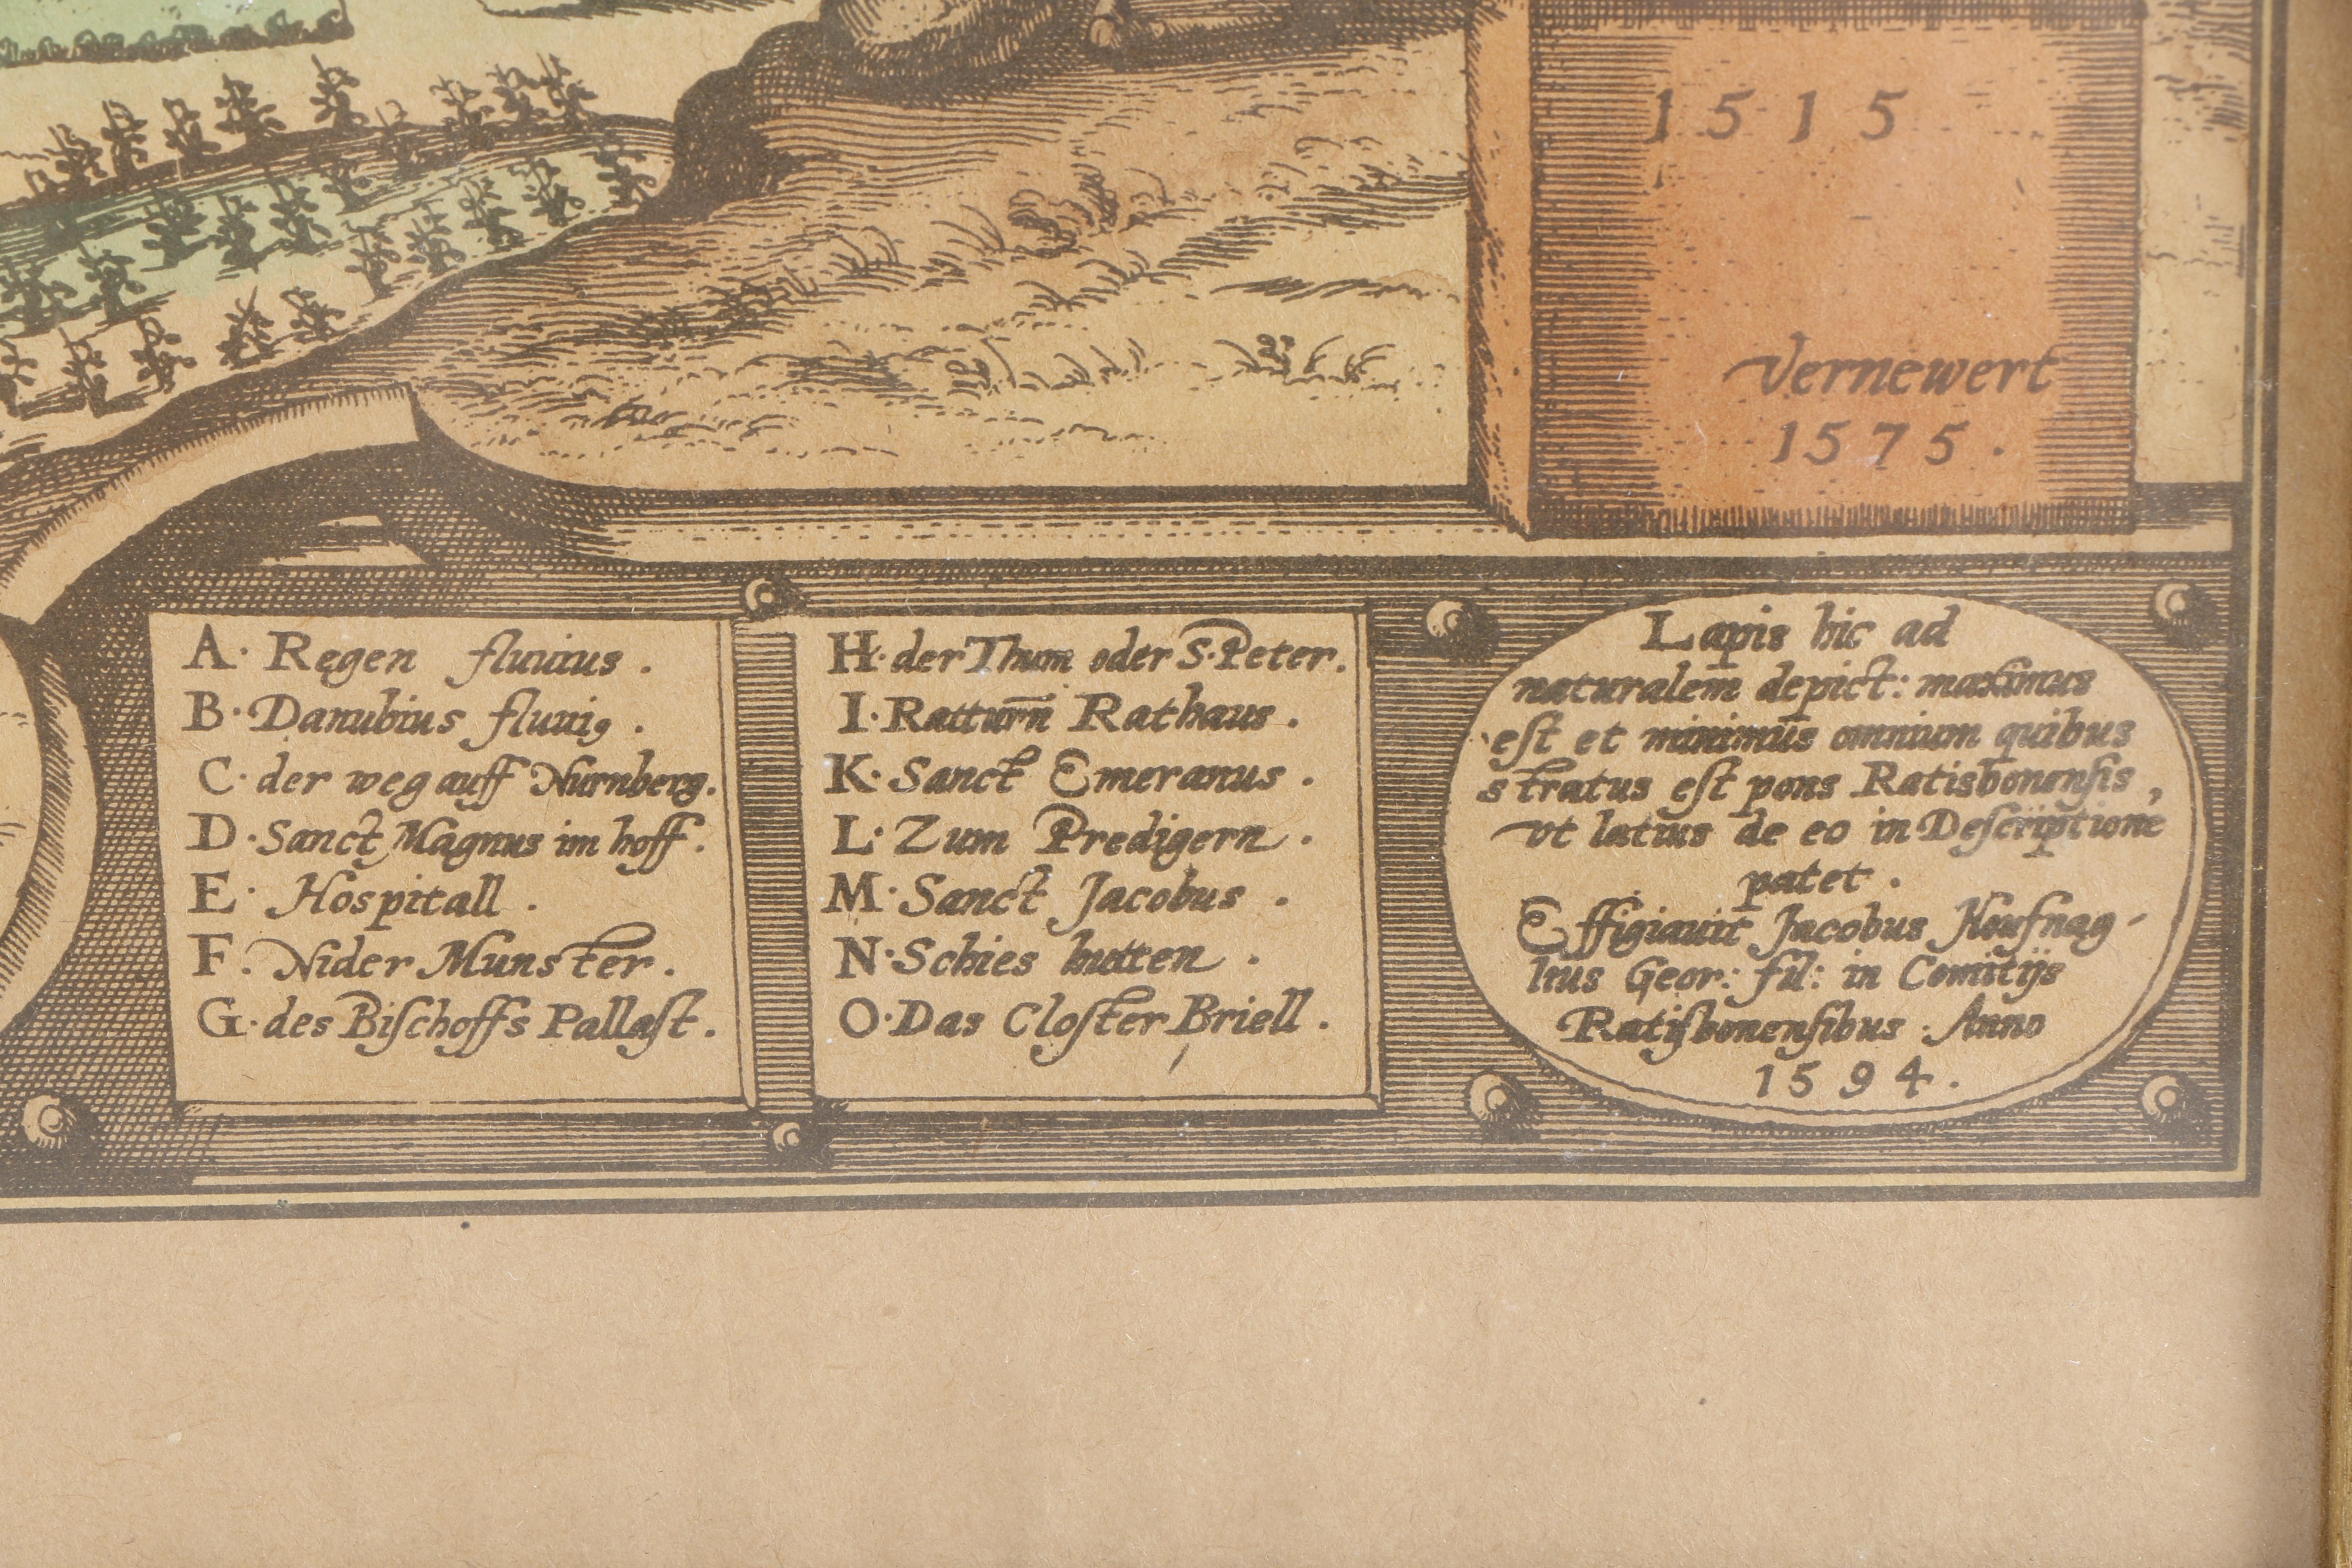 1515
Vernewert
1575.
A. Regen fluuius.
B. Danubius fluuiꝰ.
C. der weg auff Nurnberg.
D. Sanct Magnus im hoff.
E. Hospitall.
F. Nider Munster.
G. des Biſchoffs Pallaſt.
H. der Thum oder S. Peter.
I. Ratturn̄ Rathaus.
K. Sanct Emeranus.
L. Zum Predigern.
M. Sanct Jacobus.
N. Schies hutten.
O. Das Cloſter Briell.
Lapis hic ad
naturalem depict: maximus
eſt et minimus omnium quibus
stratus eſt pons Ratisbonenſis,
vt latius de eo in Deſcriptione
patet.
Effigiauit Jacobus Houfnag-
lius Geor: fil: in Comitijs
Ratiſbonenſibus. Anno
1594.